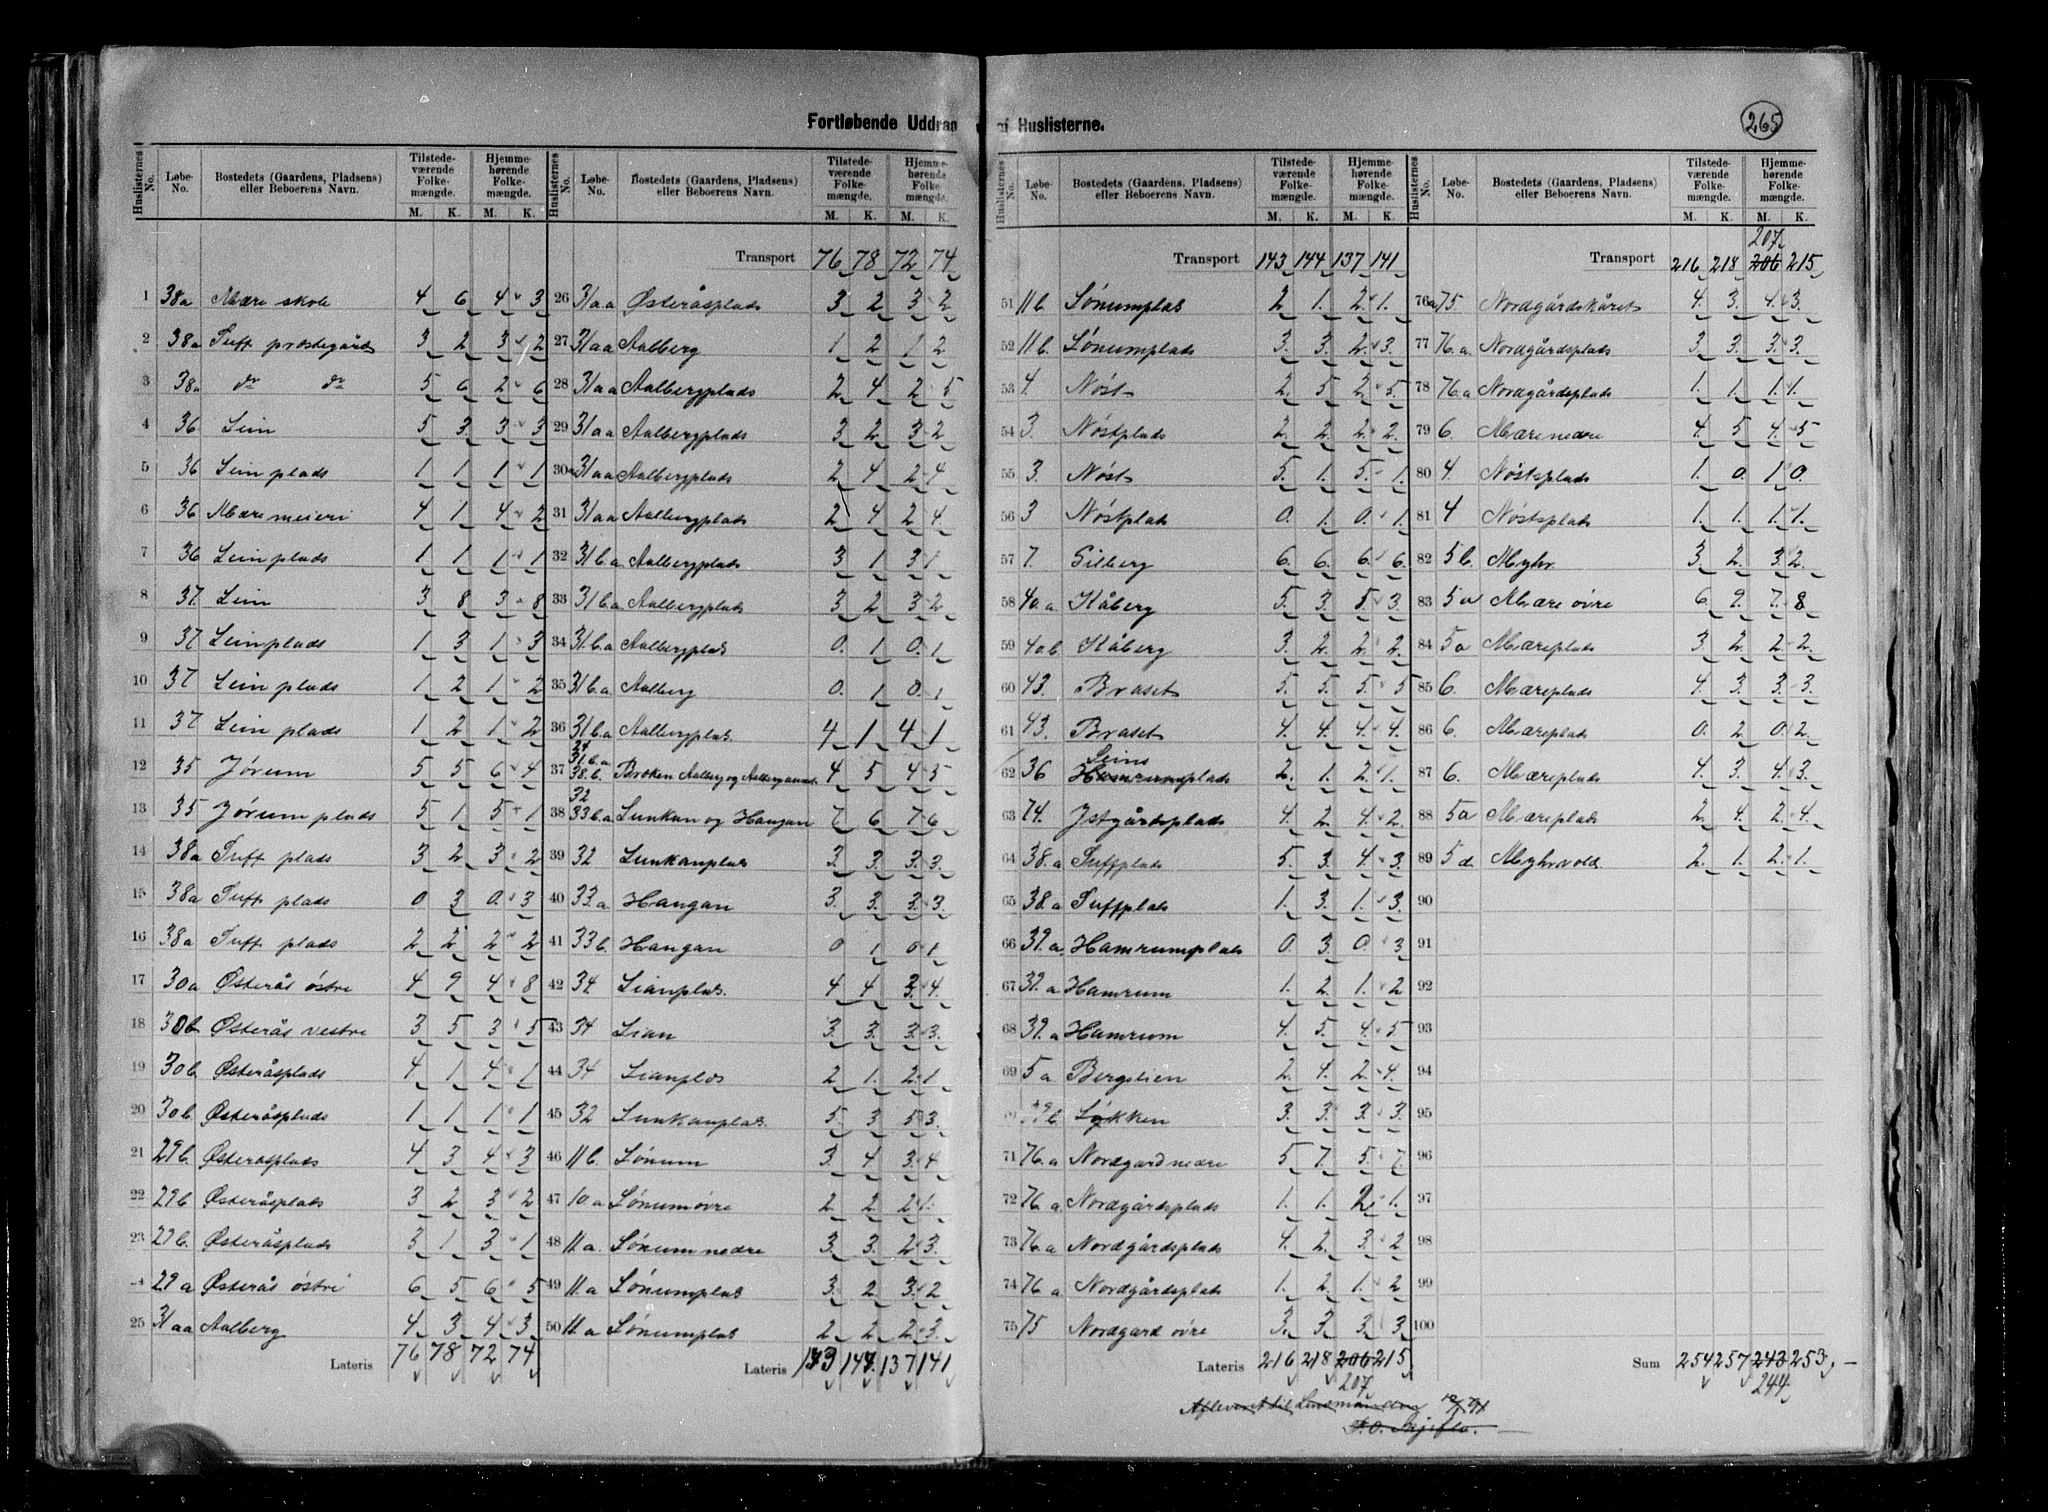 Fortløbende Uddrag af Huslisterne.
265
Huslisternes No. | Løbe-No. | Bostedets (Gaardens, Pladsens) eller Beboerens Navn. | Tilstedeværende Folkemængde. M. K. | Hjemmehørende Folkemængde. M. K.
1 38a Mære skole 4 6 4 3
2 38a Tuft prestegård 3 2 3 2
3 38a do do 5 6 2 6
4 36 Lein 5 3 3 3
5 36 Leinplads 1 1 1 1
6 36 Mære meieri 4 1 4 2
7 36 Leinplads 1 1 1 1
8 37. Lein 3 8 3 8
9 37 Leinplads 1 3 1 3
10 37 Leinplads 1 2 1 2
11 37 Leinplads 1 2 1 2
12 35 Jørum 5 5 6 4
13 35 Jørum plads 5 1 5 1
14 38a Tuft plads 3 2 3 2
15 38a Tuft plads 0 3 0 3
16 38a Tuft plads 2 2 2 2
17 30a Østerås østre 4 9 4 8
18 30b Østerås vestre 3 5 3 5
19 30b Østeråsplads 4 1 4 1
20 30b Østeråsplads 1 1 1 1
21 29b Østeråsplads 4 3 4 3
22 29b Østeråsplads 3 2 3 2
23 29b. Østeråsplads 3 1 3 1
29a Østerås østri 6 5 6 5
25 31aa Aalberg 4 3 4 3
Lateris 76 78 72 74
Transport 76 78 72 74
26 31aa Østeråsplads 3 2 3 2
27 31aa Aalberg 1 2 1 2
28 31aa Aalbergplads 2 4 2 5
29 31aa Aalbergplads 3 2 3 2
30 31aa Aalbergplads 2 4 2 4
31 31aa Aalbergplads 2 4 2 4
32 31b.a. Aalbergplads 3 1 3 1
33 31b.a Aalbergplads 3 2 3 2
34 31b.a Aalbergplads 0. 1 0. 1
35 31b.a. Aalberg 0. 1 0. 1
36 31b.a Aalbergplads. 4 1 4 1
37 31b.a 38.b. Broken Aalberg og 4 5 4 5
38 32 33b.a Lunkan og Haugan 7 6 7 6
39 32 Lunkanplads 3 3. 3. 3.
40 33.a Haugan 3. 3. 3. 3.
41 33b. Haugan 0 1 0 1
42 34. Lianplads. 4 4 3. 4.
43 34 Lian 3. 3. 3. 3.
44 34 Lianplads 2 1. 2. 1.
45 32 Lunkanplads. 5. 3 5 3.
46 11b. Sønum 3. 4 3. 4
47 10a Sønum øvre 2 2 2 1.
48 11a. Sønum nedre 3. 3. 2 3.
49 11.a Sønumplads 3. 2 3. 2
50 11.a Sønumplads 2 2 2 3.
Lateris 143 144 137 141
Transport 143 144 137 141
51 11b. Sønumplads 2 1. 2. 1.
52 11b. Sønumplads 3. 3. 2. 3.
53 4. Nøst 2. 5 2. 5.
54 3. Nøstplads 2. 2. 2. 2.
55 3. Nøst 5. 1. 5. 1.
56 3 Nøstplads 0. 1. 0. 1.
57 7. Gilberg 6. 6. 6. 6.
58 40.a Kåberg 5. 3. 5. 3.
59 40b Kåberg 3. 2. 2. 2.
60 43. Braset 5. 5. 5. 5
61 43. Braset 4. 4. 4. 4.
62 36 Leins Hamrumsplads 2. 1. 2. 1.
63 74. Istgårdsplads 4. 2 4. 2.
64 38.a Tuftplads 5. 3. 4. 3
65 38.a Tuftplads 1. 3. 1. 3.
66 39.a Hamrumplads 0. 3 0. 3
67 39.a Hamrum 1. 2. 1. 2
68 39.a Hamrum 4. 5. 4. 5
69 5a Bergslien 2. 4. 2. 4.
39b Løkken 3. 3. 3. 3.
71 76.a Nordgard nedre 5 7. 5. 7.
72 76 a Nordgårdsplads 1. 1. 2 1.
73 76.a Nordgårdsplads 4. 2. 3. 2
74 76 a Nordgårdsplads 1. 2 1. 2
75 75 Nordgard øvre 3. 3 3. 3
Lateris 216 218 206 215
207
Transport 216 218 206 215
207
76a 75. Nordgårdskåret 4. 3. 4. 3.
77 76.a. Nordgårdsplads 3. 3. 3. 3.
78 76.a Nordgårdsplads 1. 1. 1. 1.
79 6. Mære nedre 4. 5 4. 5
80 4. Nøstsplads 1. 0. 1 0.
81 4 Nøstsplads 1. 1. 1. 1.
82 5b. Myhr 3 2. 3. 2.
83 5a Mære øvre 6. 9. 7. 8
84 5a Mæreplads 3. 2. 2. 2.
85 6. Mæreplads 4. 3. 3. 3.
86 6. Mæreplads 0. 2 0. 2.
87 6. Mæreplads 4. 3. 4. 3.
88 5a Mæreplads 2. 4. 2. 4.
89 5d. Myhrvold 2. 1. 2. 1.
90
91
92
93
94
95
96
97
98
99
100
Sum 254 257 243 253
244
Afleveret til Lensmanden